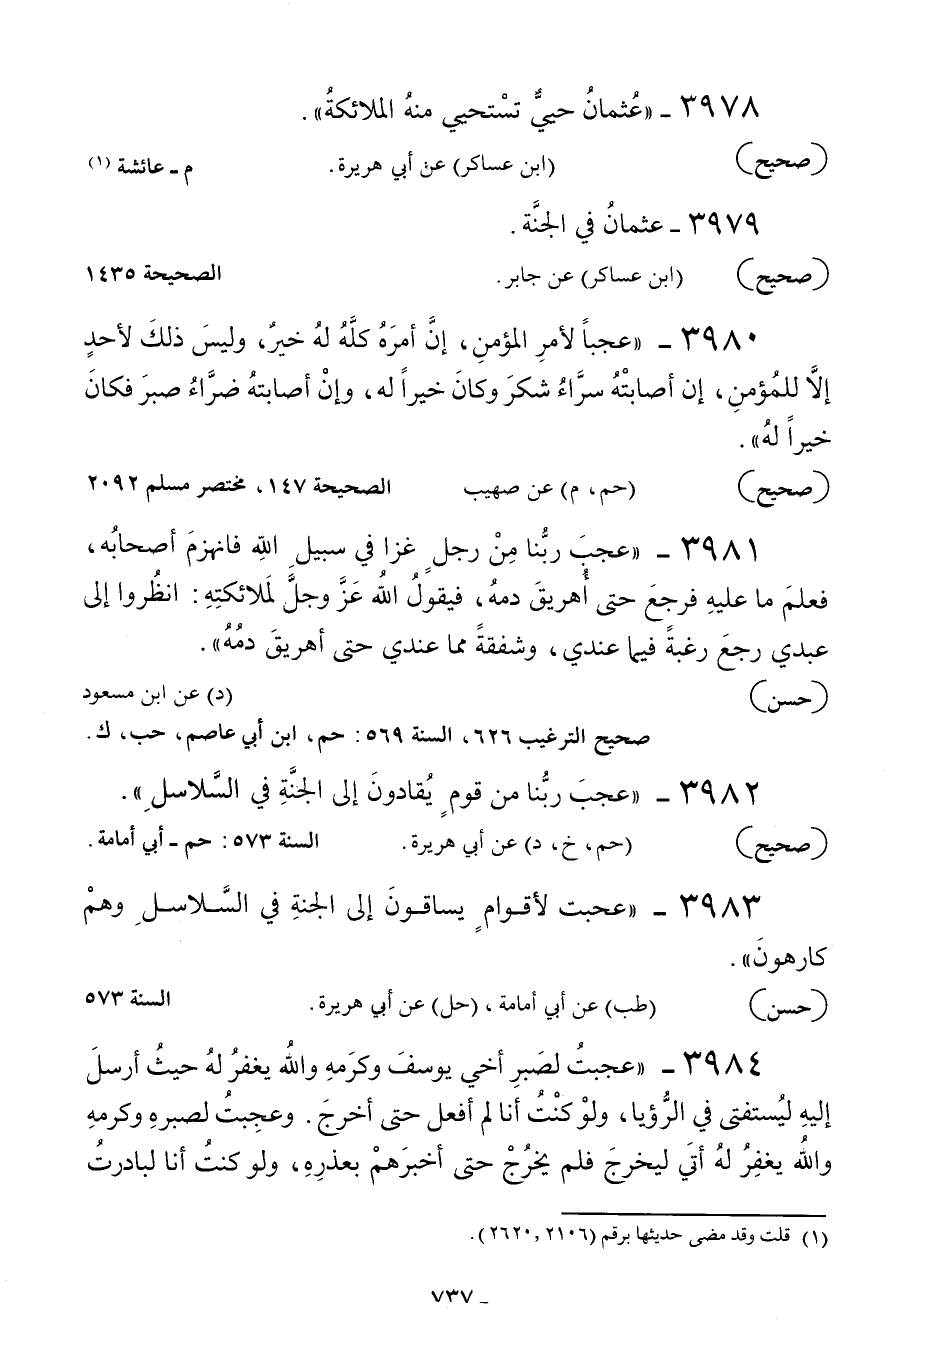 ٣٩٧٨ ـ «عُثمانُ حييٌّ تسْتحيي منهُ الملائكةُ».
(صحيح) (ابن عساكر) عن أبي هريرة. م ـ عائشة (١)
٣٩٧٩ ـ عثمانُ في الجنَّة .
(صحيح) (ابن عساكر) عن جابر. الصحيحة ١٤٣٥
٣٩٨٠ ـ «عجباً لأمرِ المؤمنِ، إنَّ أمرَهُ كلَّهُ لهُ خيرٌ، وليسَ ذلكَ لأحدٍ
إلَّا للمُؤمنِ، إن أصابتْهُ سرَّاءُ شكرَ وكانَ خيراً له، وإنْ أصابتهُ ضرَّاءُ صبرَ فكانَ
خيراً لهُ».
(صحيح) (حم، م) عن صهيب الصحيحة ١٤٧، مختصر مسلم ٢٠٩٢
٣٩٨١ ـ «عجبَ ربُّنا مِنْ رجلٍ غزا في سبيلِ اللهِ فانهزمَ أصحابُه،
فعلمَ ما عليهِ فرجعَ حتى أُهريقَ دمهُ، فيقولُ اللهُ عَزَّ وجلَّ لملائكتِهِ: انظُروا إلى
عبدي رجعَ رغبةً فيما عندي، وشفقةً مما عندي حتى أهريقَ دمُهُ».
(حسن) (د) عن ابن مسعود
صحيح الترغيب ٦٢٦، السنة ٥٦٩: حم، ابن أبي عاصم، حب، ك.
٣٩٨٢ ـ «عجبَ ربُّنا من قومٍ يُقادونَ إلى الجنَّةِ في السَّلاسلِ».
(صحيح) (حم، خ، د) عن أبي هريرة. السنة ٥٧٣: حم ـ أبي أمامة.
٣٩٨٣ ـ «عجبت لأقوامٍ يساقونَ إلى الجنةِ في السَّلاسلِ وهمْ
كارهونَ».
(حسن) (طب) عن أبي أمامة، (حل) عن أبي هريرة. السنة ٥٧٣
٣٩٨٤ ـ «عجبتُ لصَبرِ أخي يوسفَ وكرَمهِ واللهُ يغفرُ لهُ حيثُ أرسلَ
إليهِ ليُستفتى في الرُّؤيا، ولوْ كنْتُ أنا لم أفعل حتى أخرجَ. وعجِبتُ لصبرهِ وكرمهِ
واللهُ يغفِرُ لهُ أتَي ليخرجَ فلم يخرُجْ حتى أخبرَهمْ بعذرِهِ، ولو كنتُ أنا لبادرتُ
(١) قلت وقد مضى حديثها برقم (٢١٠٦ , ٢٦٢٠).
٧٣٧ ـ